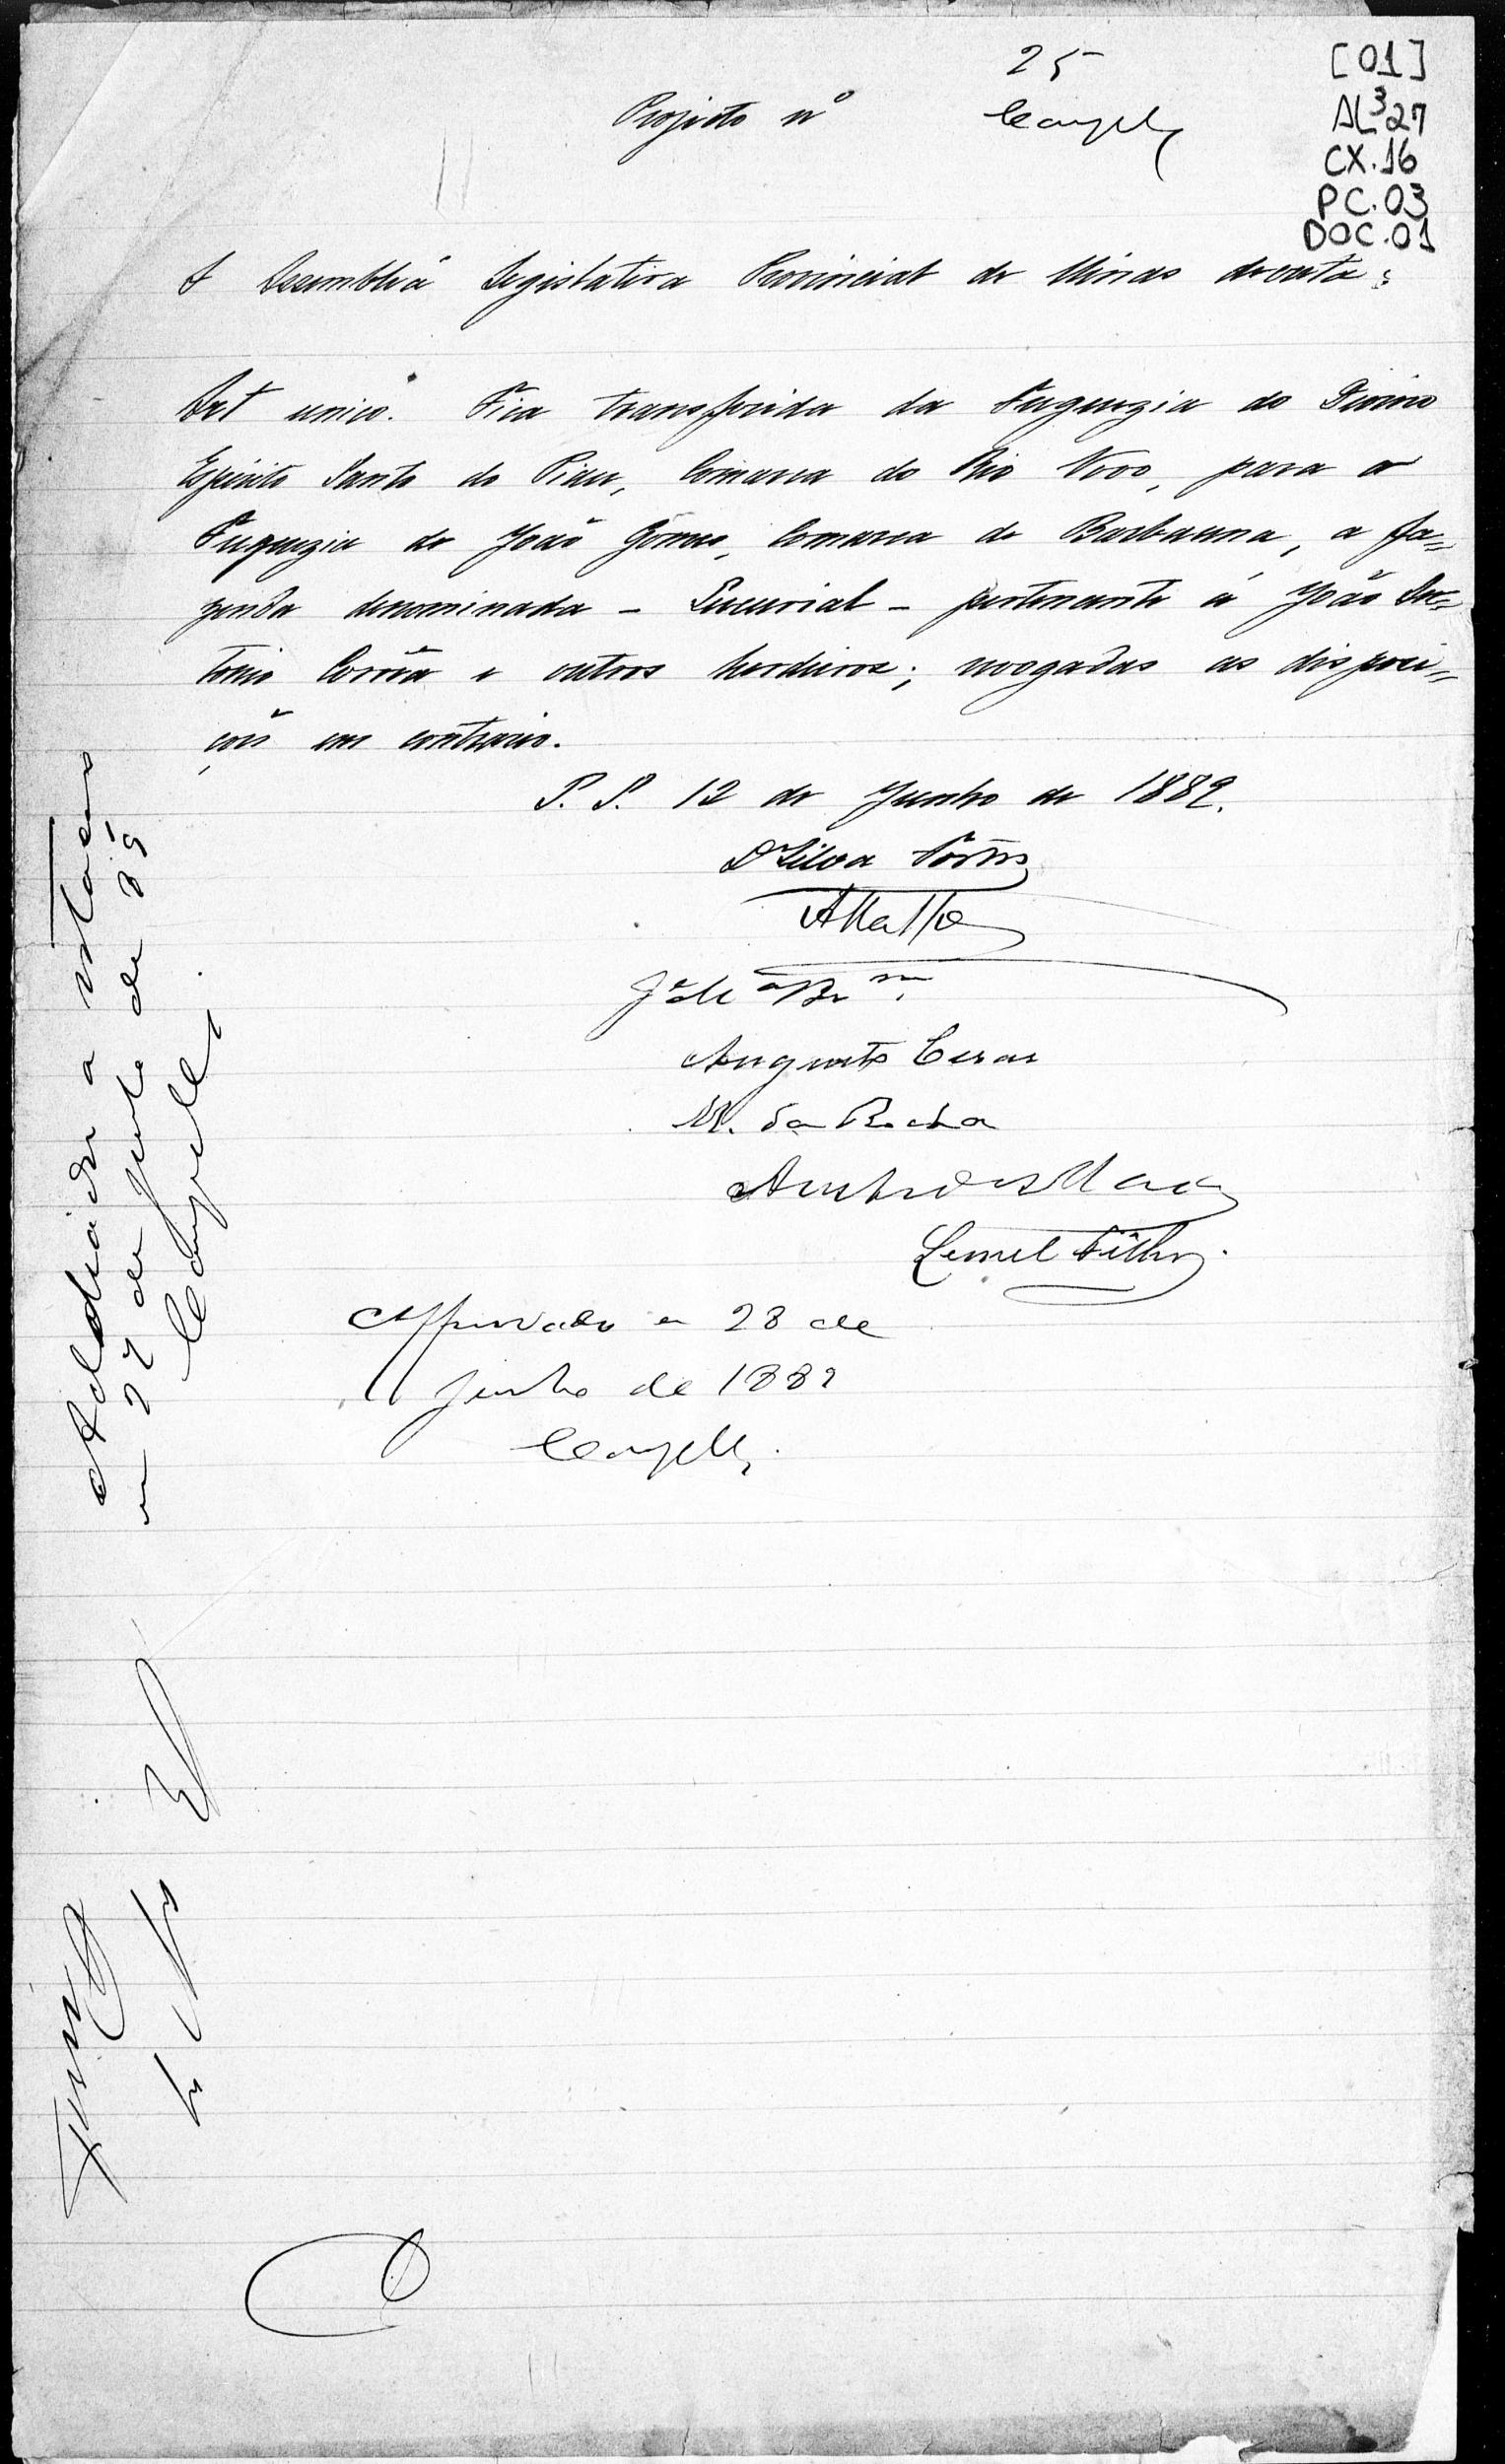 25
Projecto nº
[01]
AL³27
CX.16
PC.03
DOC.01
A Assemblêa Legislativa Provincial de Minas decreta:
Art unico. Fica transferida da Freguezia do Divino
Espirito Santo do Piau, Comarca do Rio Novo, para a
Freguezia de João Gomes, Comarca de Barbacena, a fa=
zenda denominada - Sucurial - pertencente á João An=
tonio Corrêa e outros herdeiros; revogadas as disposi=
ções em contrario.
P. P. 12 de Junho de 1889.
Dr Silva Fortes
A Matta
Augusto Cesar
M. da Rocha
Lemel Filho.
Approvado em 28 de
junho de 1889
Addiado a votacao
em 27 de junho de 89